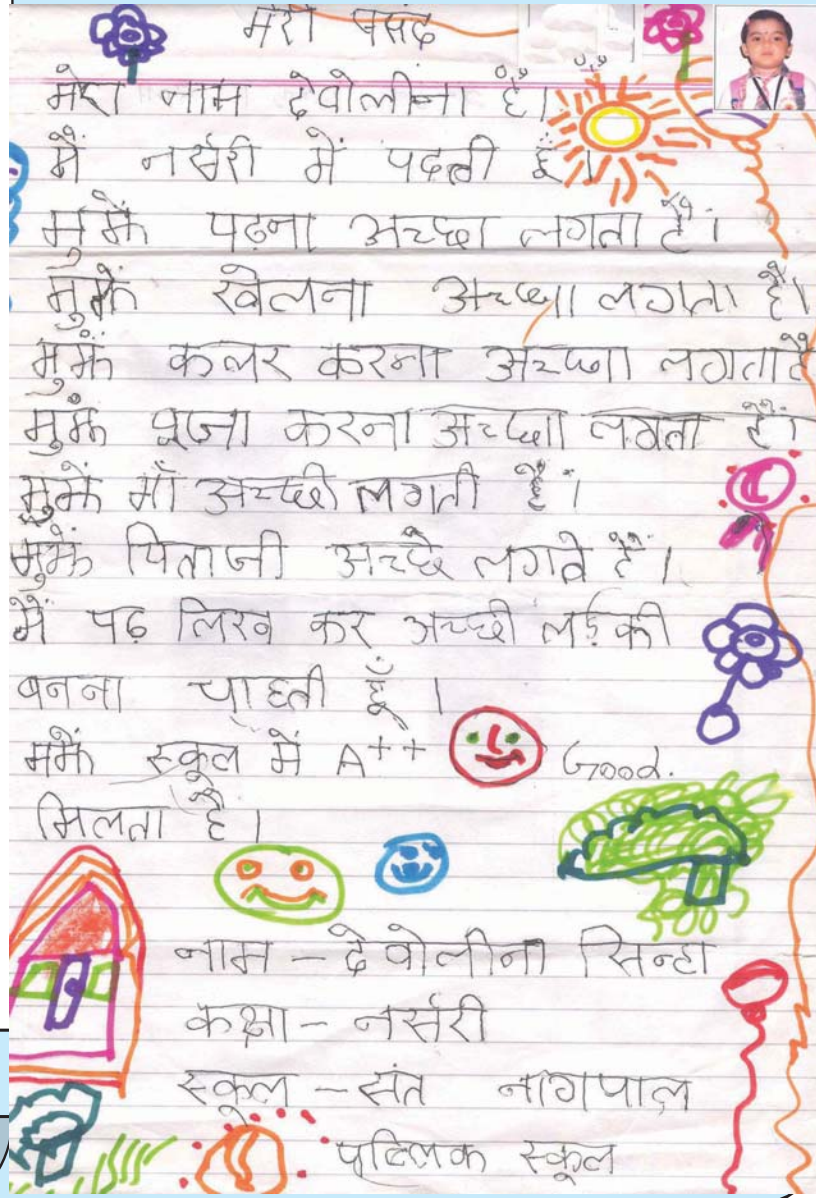 मेरी पसंद
मेरा नाम देवोलीना है।
मैं नर्सरी में पढती हूँ।
मुझे पढ़ना अच्छा लगता है।
मुझे खेलना अच्छा लगता है।
मुझे कलर करना अच्छा लगता है
मुझे पूजा करना अच्छा लगता है।
मुझे माँ अच्छी लगती है।
मुझे पिताजी अच्छे लगते है।
मैं पढ़ लिख कर अच्छी लड़की
बनना चाहती हूँ।
मुझे स्कूल में A++ Good.
मिलता है।
नाम - देवोलीना सिन्हा
कक्षा - नर्सरी
स्कूल - संत नागपाल
पब्लिक स्कूल